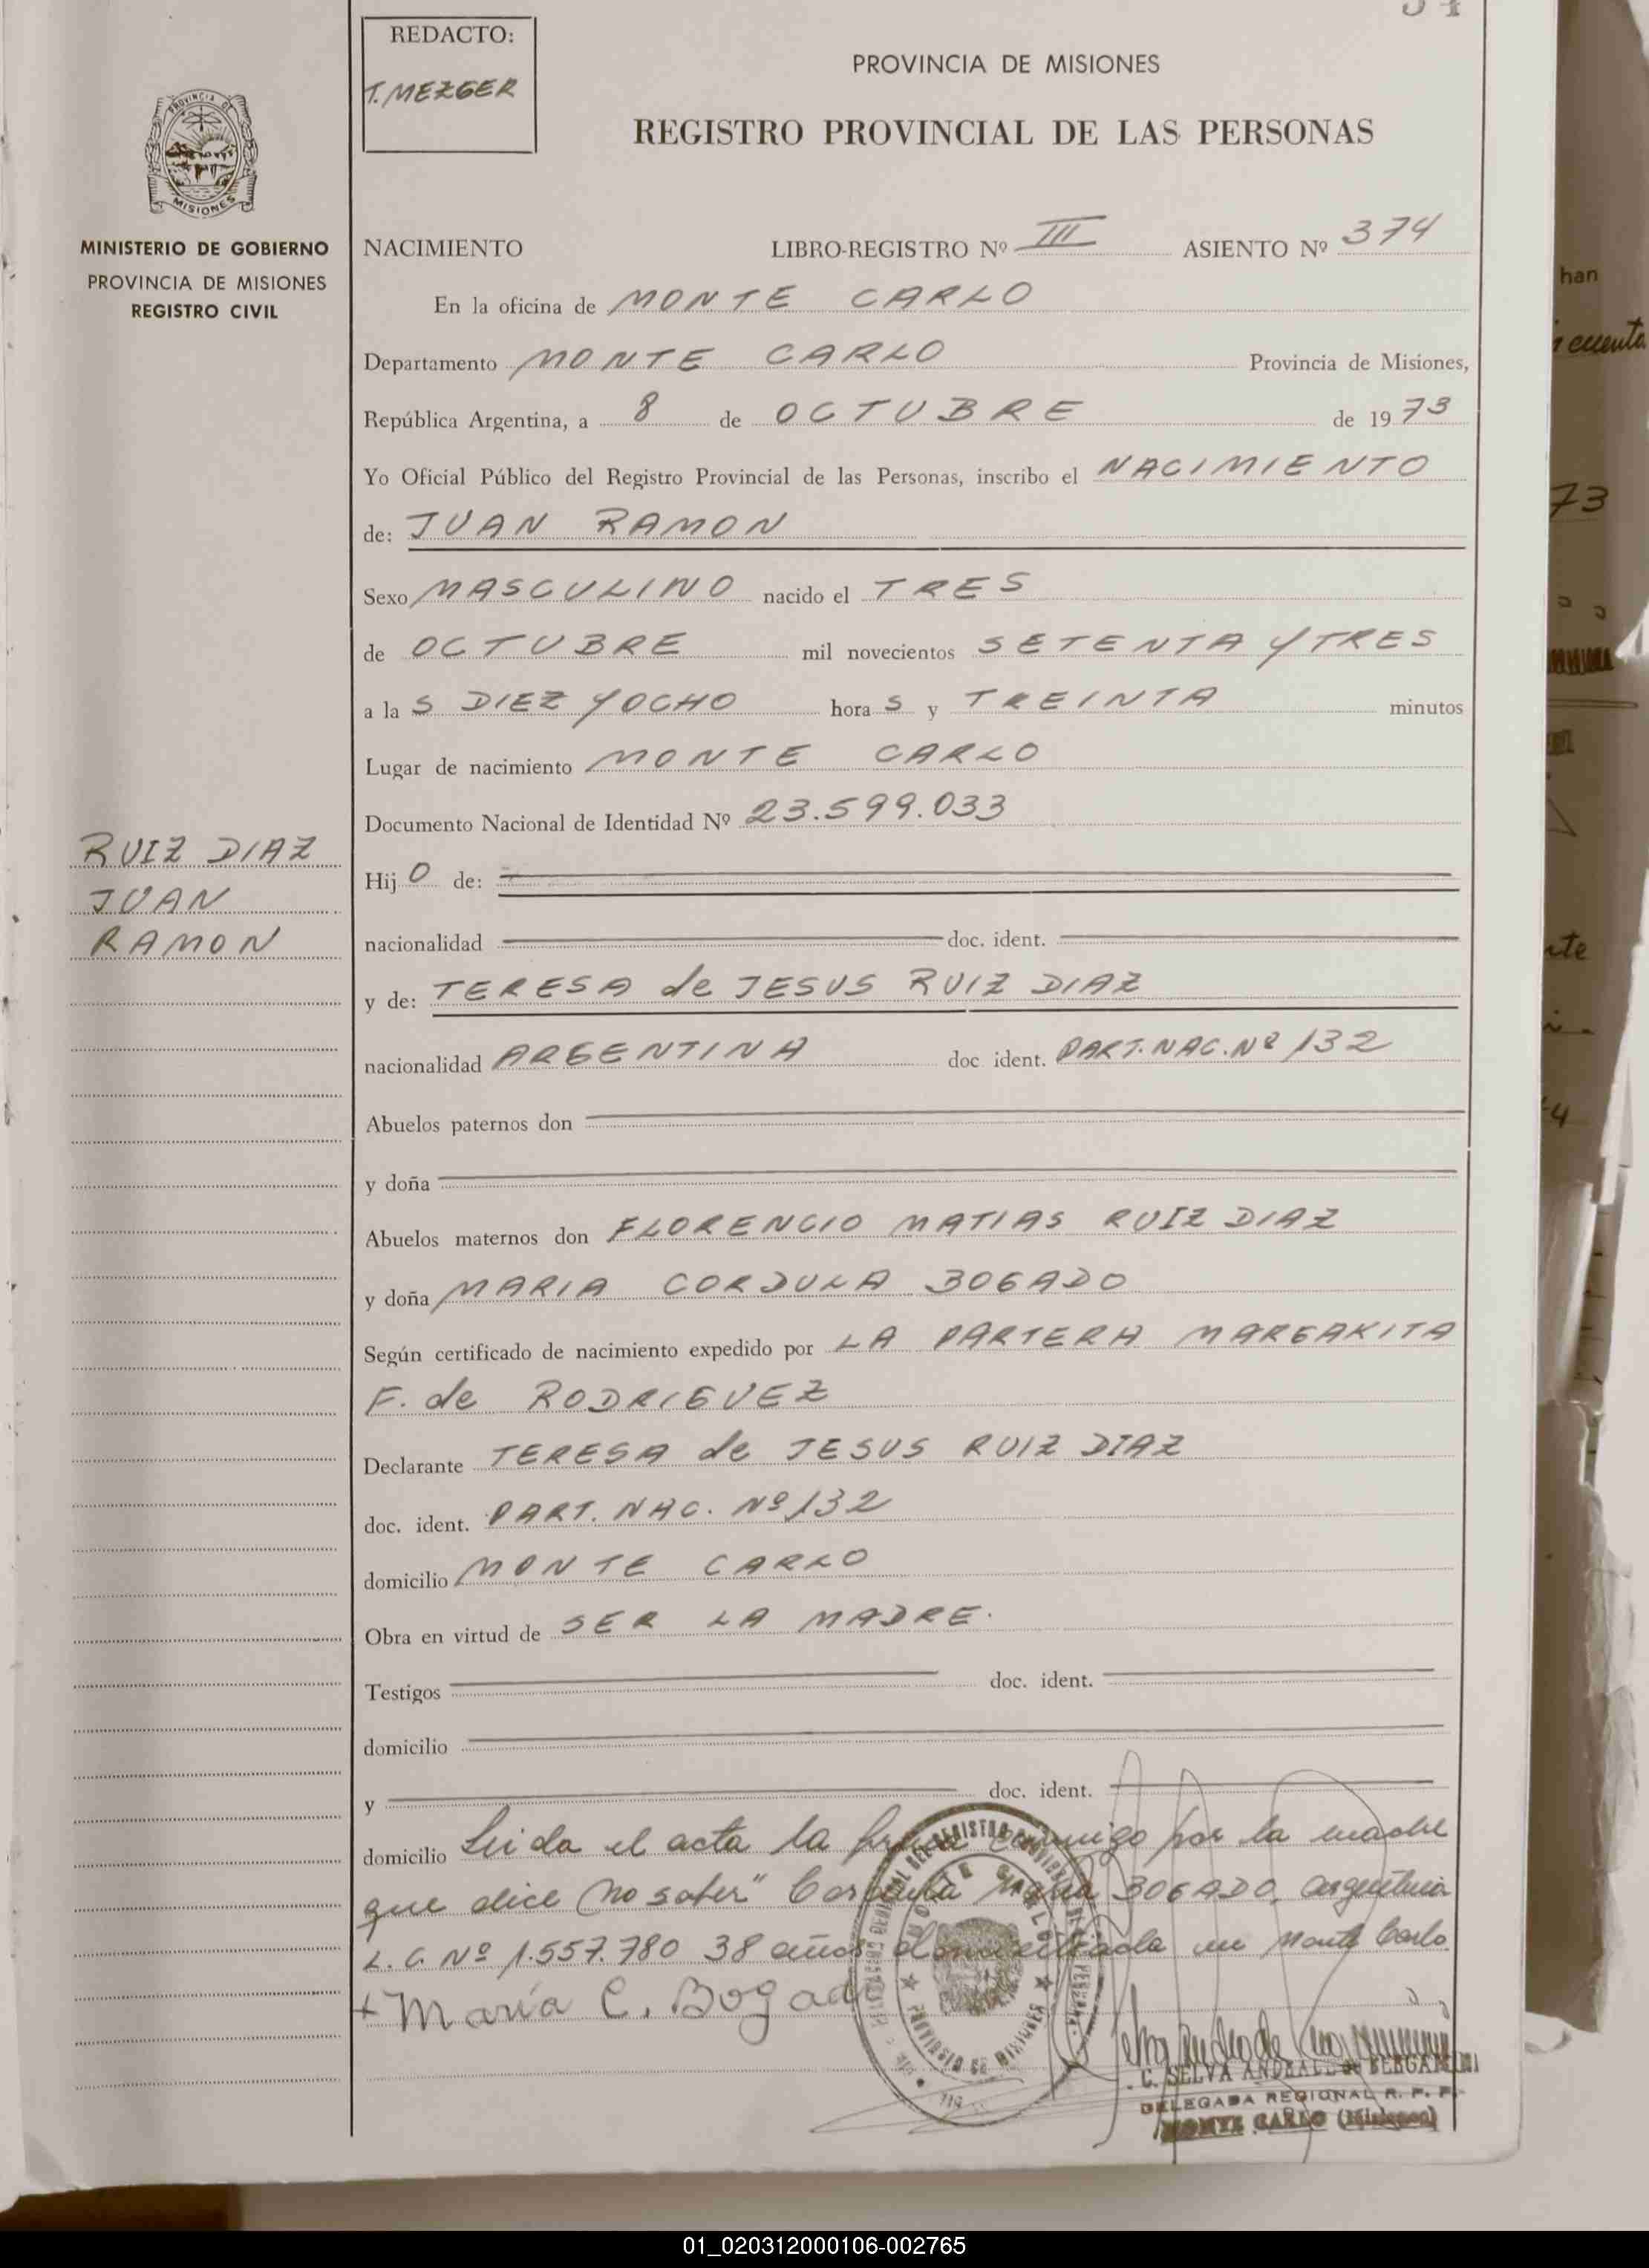 REDACTO:
T. MEZGER
PROVINCIA DE MISIONES
REGISTRO PROVINCIAL DE LAS PERSONAS
PROVINCIA DE
MISIONES
MINISTERIO DE GOBIERNO
PROVINCIA DE MISIONES
REGISTRO CIVIL
NACIMIENTO LIBRO-REGISTRO Nº III ASIENTO Nº 374
En la oficina de MONTE CARLO
Departamento MONTE CARLO Provincia de Misiones,
República Argentina, a 8 de OCTUBRE de 1973
Yo Oficial Público del Registro Provincial de las Personas, inscribo el NACIMIENTO
de: JUAN RAMON
Sexo MASCULINO nacido el TRES
de OCTUBRE mil novecientos SETENTA Y TRES
a la S DIEZ Y OCHO hora S y TREINTA minutos
Lugar de nacimiento MONTE CARLO
Documento Nacional de Identidad Nº 23.599.033
RUIZ DIAZ
JUAN
RAMON
Hij O de:
nacionalidad doc. ident.
y de: TERESA de JESUS RUIZ DIAZ
nacionalidad ARGENTINA doc ident. PART. NAC. Nº 132
Abuelos paternos don
y doña
Abuelos maternos don FLORENCIO MATIAS RUIZ DIAZ
y doña MARIA CORDULA BOGADO
Según certificado de nacimiento expedido por LA PARTERA MARGARITA
F. de RODRIGUEZ
Declarante TERESA de JESUS RUIZ DIAZ
doc. ident. PART. NAC. Nº 132
domicilio MONTE CARLO
Obra en virtud de SER LA MADRE.
Testigos doc. ident.
domicilio
y doc. ident.
domicilio Leida el acta la firma conmigo por la madre
que dice "no saber" BOGADO, argentina
L. C. Nº 1.557.780 38 años domiciliada en Monte Carlo
+ María C. Bogado
C. SELVA ANDRADE DE BERGAMINI
DELEGADA REGIONAL R. P. P.
MONTE CARLO (Misiones)
han
73
01_020312000106-002765